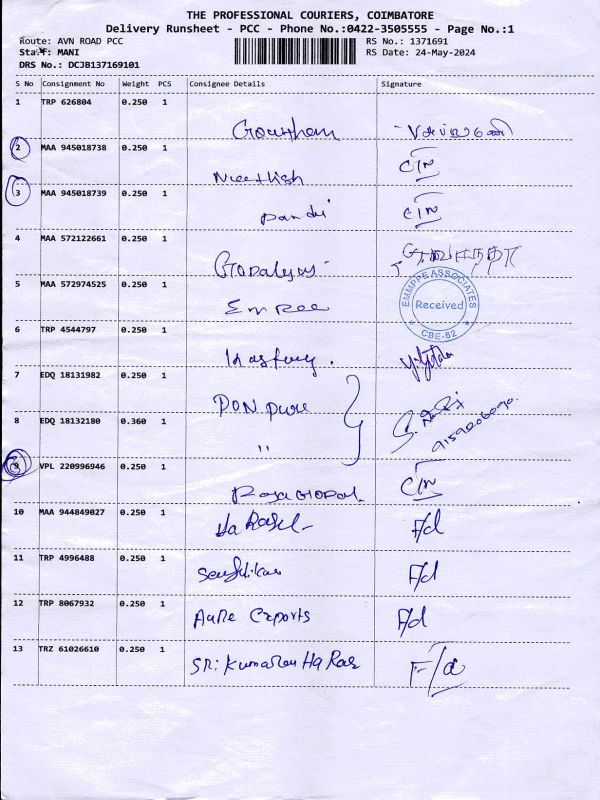 THE PROFESSIONAL COURIERS, COIMBATORE
Delivery Runsheet - PCC - Phone No.:0422-3505555 - Page No.:1
Route: AVN ROAD PCC
RS No.: 1371691
Staff: MANI
RS Date: 24-May-2024
DRS No.: DCJB137169101
S No Consignment No Weight PCS Consignee Details Signature
1 TRP 626804 0.250 1
Goutham
2 MAA 945018738 0.250 1
Neethish
3 MAA 945018739 0.250 1
Pandi
4 MAA 572122661 0.250 1
5 MAA 572974525 0.250 1
EMMPPE ASSOCIATES
Received
CBE-62
6 TRP 4544797 0.250 1
7 EDQ 18131982 0.250 1
PON pure
8 EDQ 18132180 0.360 1
"
9 VPL 220996946 0.250 1
RajaGopal
10 MAA 944849027 0.250 1
F/d
11 TRP 4996488 0.250 1
F/d
12 TRP 8067932 0.250 1
Exports F/d
13 TRZ 61026610 0.250 1
F/d